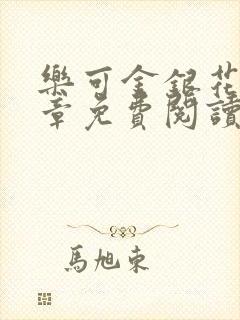 樂可金銀花
章免費閱讀
馬旭東